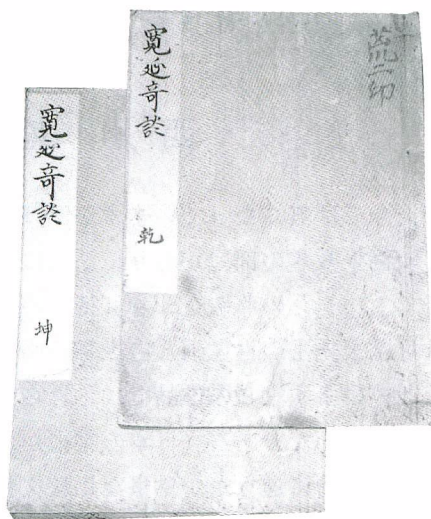 寛延奇談
乾
寛延奇談
坤